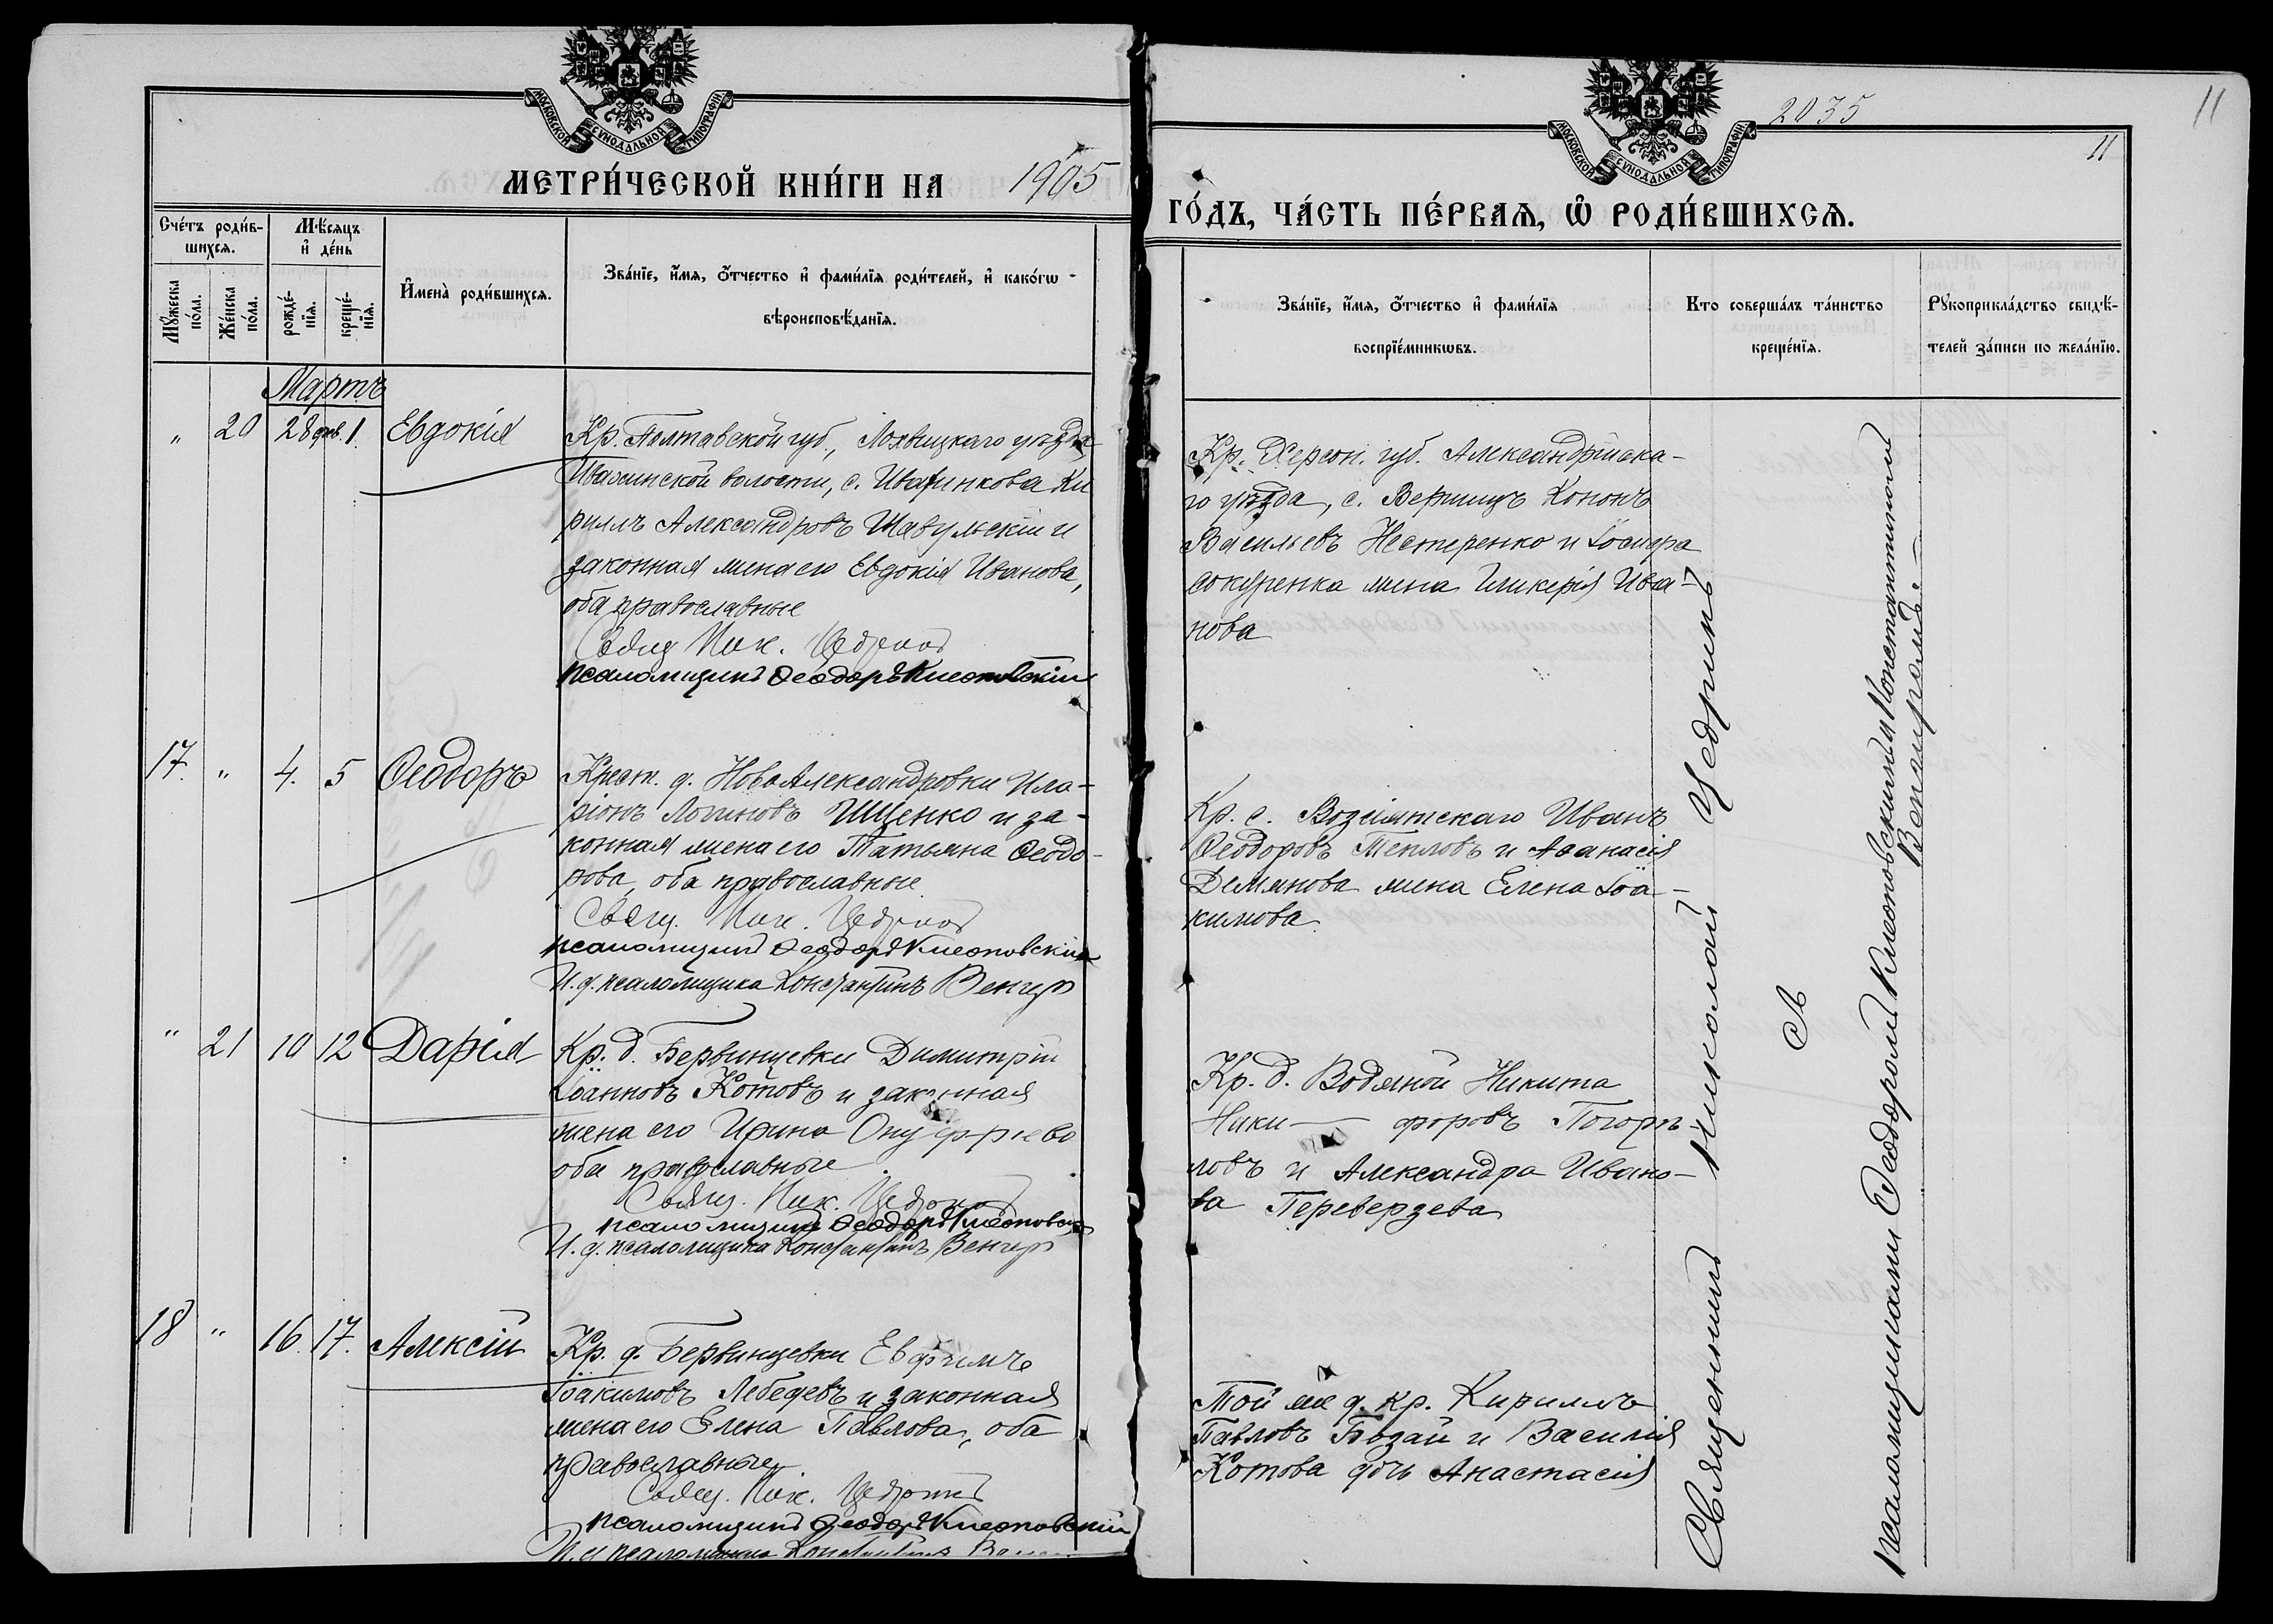 МОСКОВСКОЙ СѴНОДАЛЬНОЙ ТИПОГРАФІИ
МЕТРИ́ЧЕСКОЙ КНИ́ГИ НА 1905
Сче́тъ роди́в-
шихсѧ.
Мѣ́сяцъ
и҆ де́нь
Мꙋ́жеска
по́ла.
Же́нска
по́ла.
рожде́-
нїѧ.
креще́-
нїѧ.
И҆мена̀ роди́вшихсѧ.
Зва́нїе, и҆́мѧ, ѻ҆́тчество и҆ фами́лїѧ роди́телей, и҆ како́гѡ
вѣроисповѣ́данїѧ.
Мартъ
" 20 28 фев. 1. Евдокія
Кр. Полтавской губ., Лохвицкаго уѣзда
волости, с. Ки
риллъ Александровъ Шавульскій и
законная жена его Евдокія Иванова,
оба православные
Свящ. Ник. Цедринъ
псаломщикъ Ѳеодоръ Клеоповскій
17. " 4. 5 Ѳеодоръ
Крест. д. НовоАлександровки Ила-
ріонъ Логиновъ Ищенко и за-
конная жена его Татьяна Ѳеодо-
рова, оба православные
Свящ. Ник. Цедринъ
псаломщикъ Ѳеодоръ Клеоповскій
И. д. псаломщика Константинъ Венгер
" 21 10 12 Дарія
Кр. д. Бервинцевки Димитрій
Іоанновъ Котовъ и законная
жена его Ирина Онуфріева
оба православные
Свящ. Ник. Цедринъ
псаломщикъ Ѳеодоръ Клеоповскій
И. д. псаломщика Константинъ Венгер
18 " 16. 17. Алексій
Кр. д. Бервинцевки Евфимъ
Іоакимовъ Лебедевъ и законная
жена его Елена Павлова, оба
православные
Свящ. Ник. Цедринъ
псаломщикъ Ѳеодоръ Клеоповскій
И. д. псаломщика Константинъ
2035
11
11
МОСКОВСКОЙ СѴНОДАЛЬНОЙ ТИПОГРАФІИ
ГО́ДЪ, ЧА́СТЬ ПЕ́РВАѦ, Ѡ҆ РОДИ́ВШИХСѦ.
Зва́нїе, и҆́мѧ, ѻ҆́тчество и҆ фами́лїѧ
воспрїе́мникѡвъ.
Кто соверша́лъ та́инство
креще́нїѧ.
Рꙋкоприкла́дство свидѣ́-
телей за́писи по жела́нїю.
Кр. Херсон. губ. Александрійска-
го уѣзда, с. Кононъ
Васильевъ Нестеренко и
жена Гликерія Ива-
нова
Кр. с. Возсіятскаго Иванъ
Ѳеодоровъ Тепловъ и Аѳанасія
Демянова жена Елена Іоа-
кимова.
Кр. д. Водяной Никита
Ники— форовъ Погорѣ-
ловъ и Александра Ивано-
ва Переверзева
Той же д. кр. Кириллъ
Павловъ Бозай и Василія
Котова дочь Анастасія
Священникъ Николай Цедринъ
съ
псаломщиками Ѳеодоромъ Клеоповскимъ и Константиномъ
Венгеромъ.—